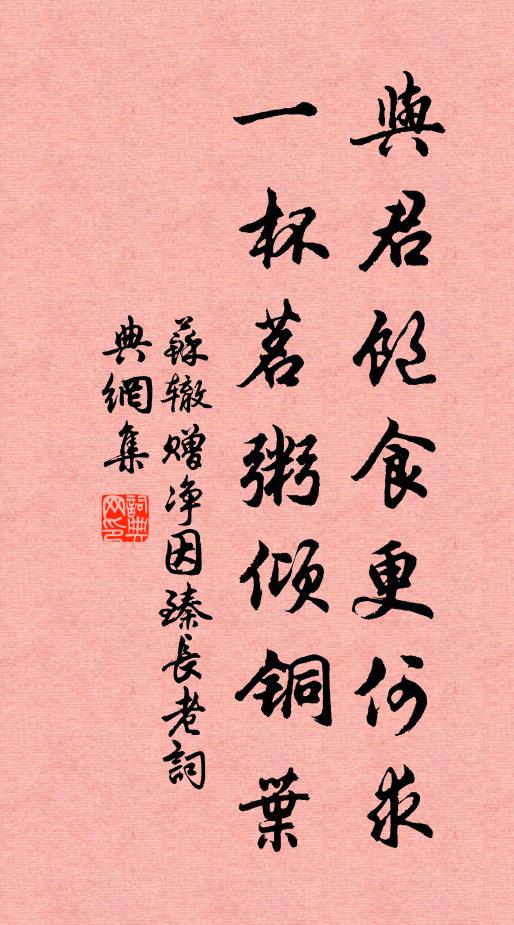 與君飽食更何求
一杯茗粥傾銅葉
蘇辙赠净因臻長老詞
典網集
詞典
网印